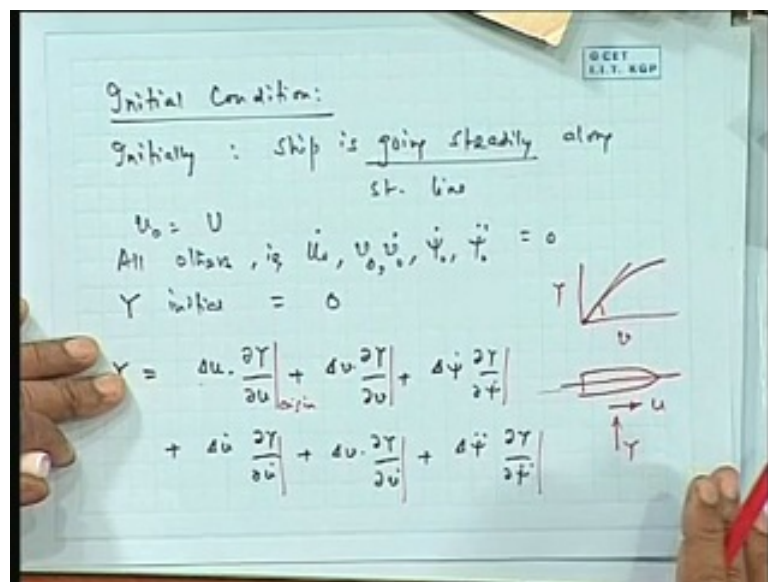 GCET
I.I.T. KGP
Initial Condition:
Initially : Ship is going steadily along
st. line
u₀ = U
All others, ie u̇₀, v₀, v̇₀, ψ̇₀, ψ̈₀ = 0
Y initial = 0
Y = Δu · ∂Y/∂u |origin + Δv · ∂Y/∂v | + Δψ̇ ∂Y/∂ψ̇ |
+ Δu̇ ∂Y/∂u̇ | + Δv̇ · ∂Y/∂v̇ | + Δψ̈ ∂Y/∂ψ̈ |
Y
v
u
Y